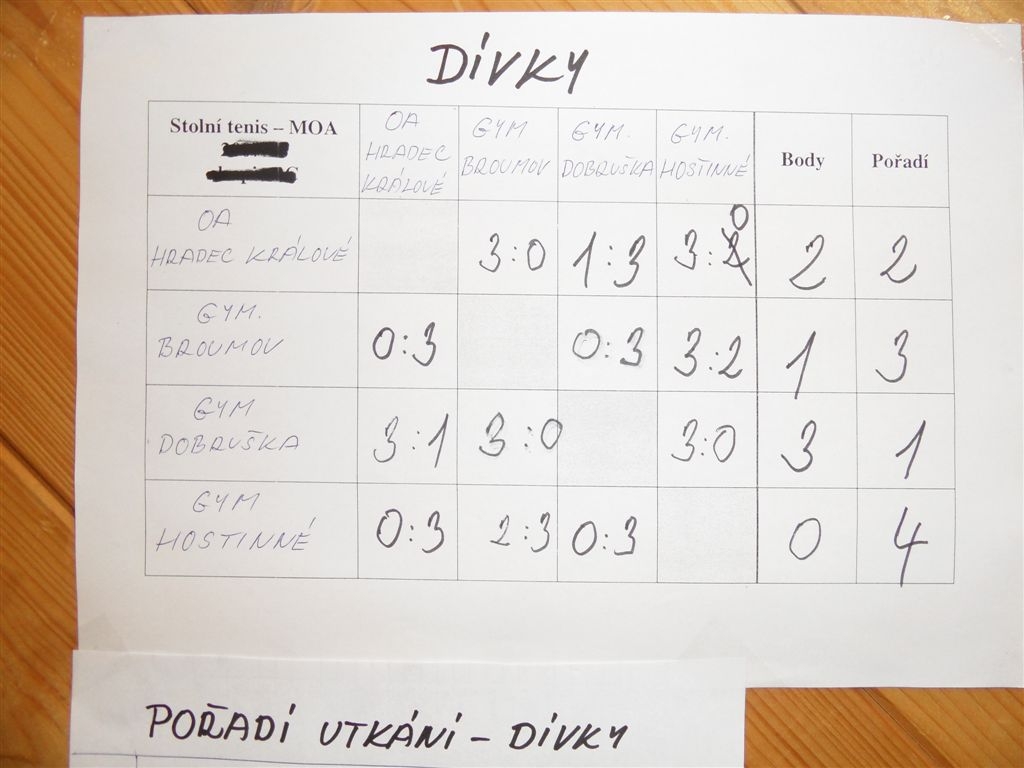 DÍVKY
Stolní tenis – MOA
OA HRADEC KRÁLOVÉ
GYM BROUMOV
GYM. DOBRUŠKA
GYM. HOSTINNÉ
Body
Pořadí
OA HRADEC KRÁLOVÉ 3:0 1:3 3:0 2 2
GYM. BROUMOV 0:3 0:3 3:2 1 3
GYM DOBRUŠKA 3:1 3:0 3:0 3 1
GYM HOSTINNÉ 0:3 2:3 0:3 0 4
POŘADÍ UTKÁNÍ – DÍVKY